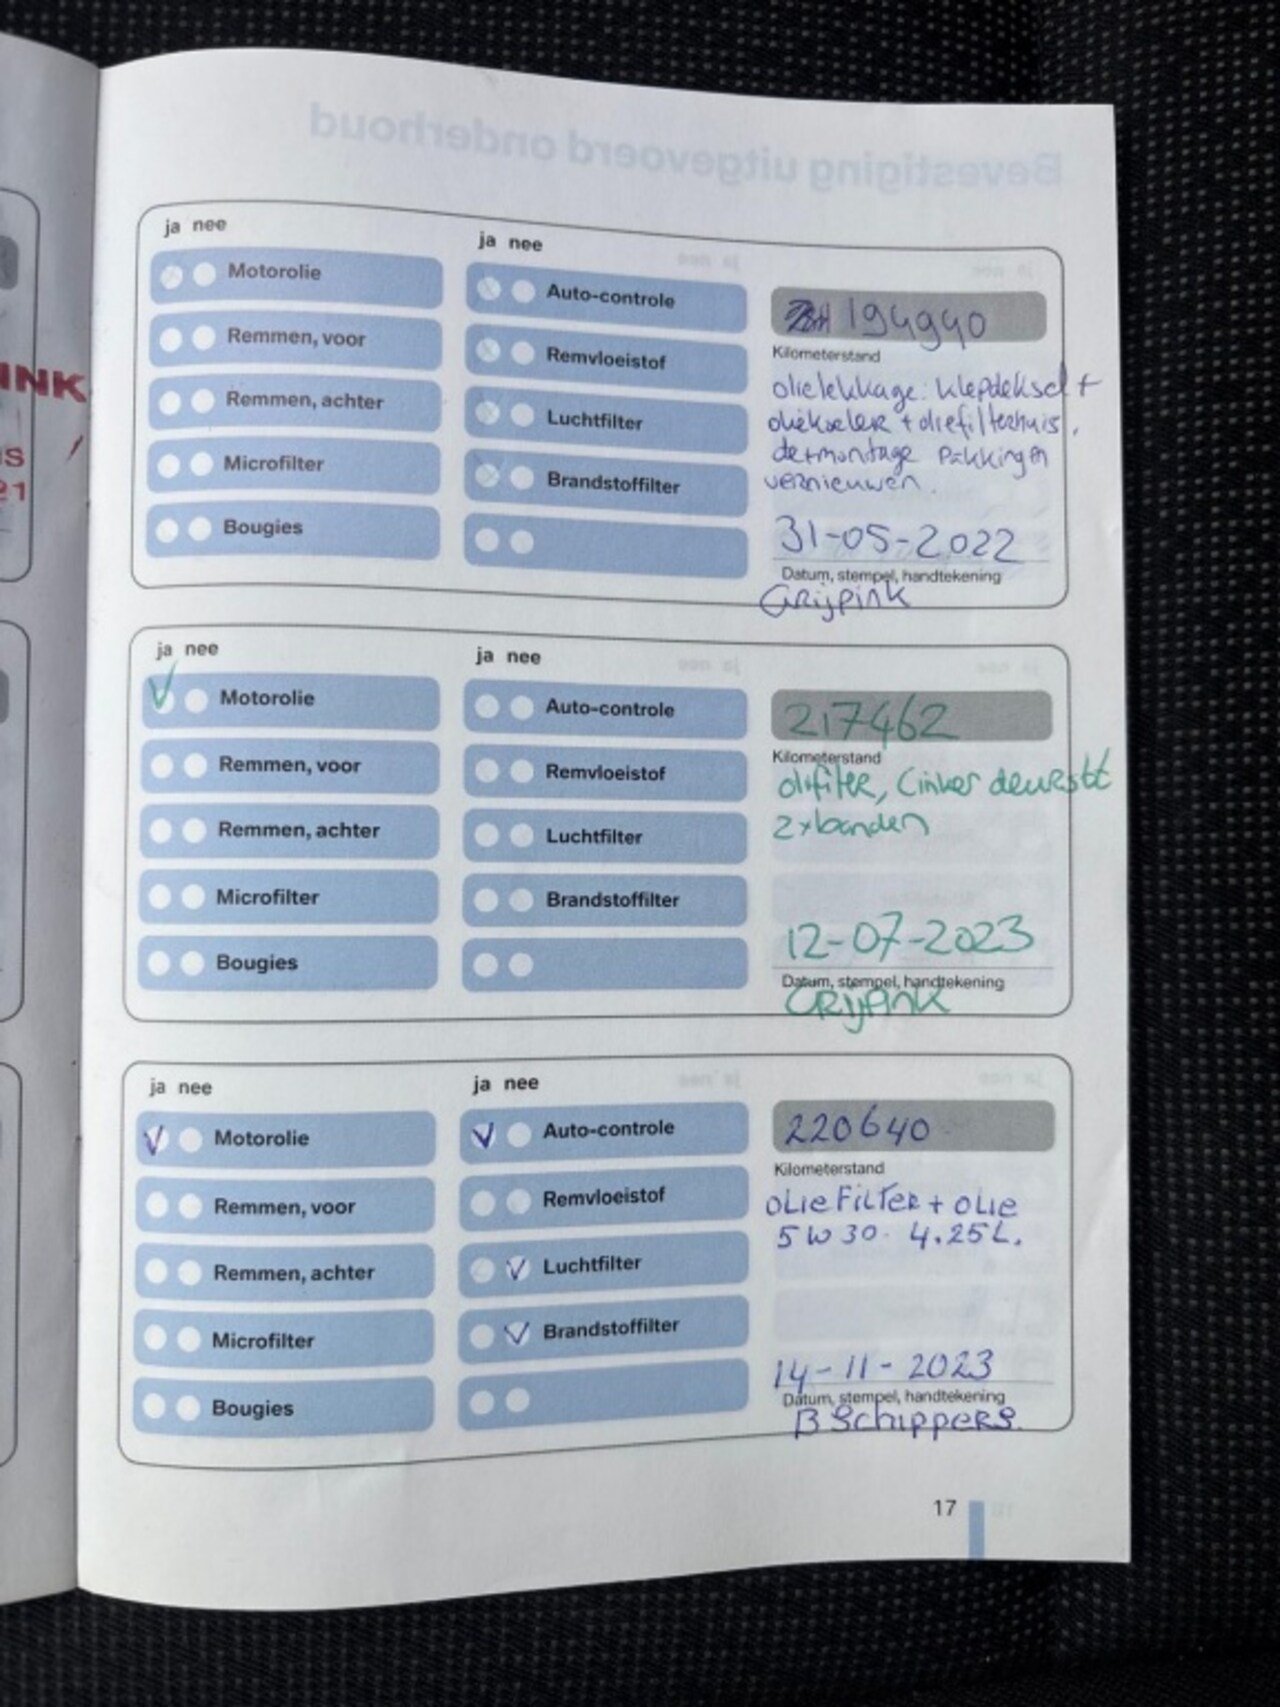 Bevestiging uitgevoerd onderhoud
INK
ja nee
Motorolie
Remmen, voor
Remmen, achter
Microfilter
Bougies
ja nee
Auto-controle
Remvloeistof
Luchtfilter
Brandstoffilter
194940
Kilometerstand
olielekkage: klepdeksel +
oliekoeler + oliefilterhuis.
de+montage pakkingen
vernieuwen.
31-05-2022
Datum, stempel, handtekening
Grijpink
ja nee
Motorolie
Remmen, voor
Remmen, achter
Microfilter
Bougies
ja nee
Auto-controle
Remvloeistof
Luchtfilter
Brandstoffilter
217462
Kilometerstand
olifilter, Linker
2x banden
12-07-2023
Datum, stempel, handtekening
Grijpink
ja nee
Motorolie
Remmen, voor
Remmen, achter
Microfilter
Bougies
ja nee
Auto-controle
Remvloeistof
Luchtfilter
Brandstoffilter
220640
Kilometerstand
OLIEFILTER + OLIE
5W30. 4.25L.
14-11-2023
Datum, stempel, handtekening
B Schippers.
17